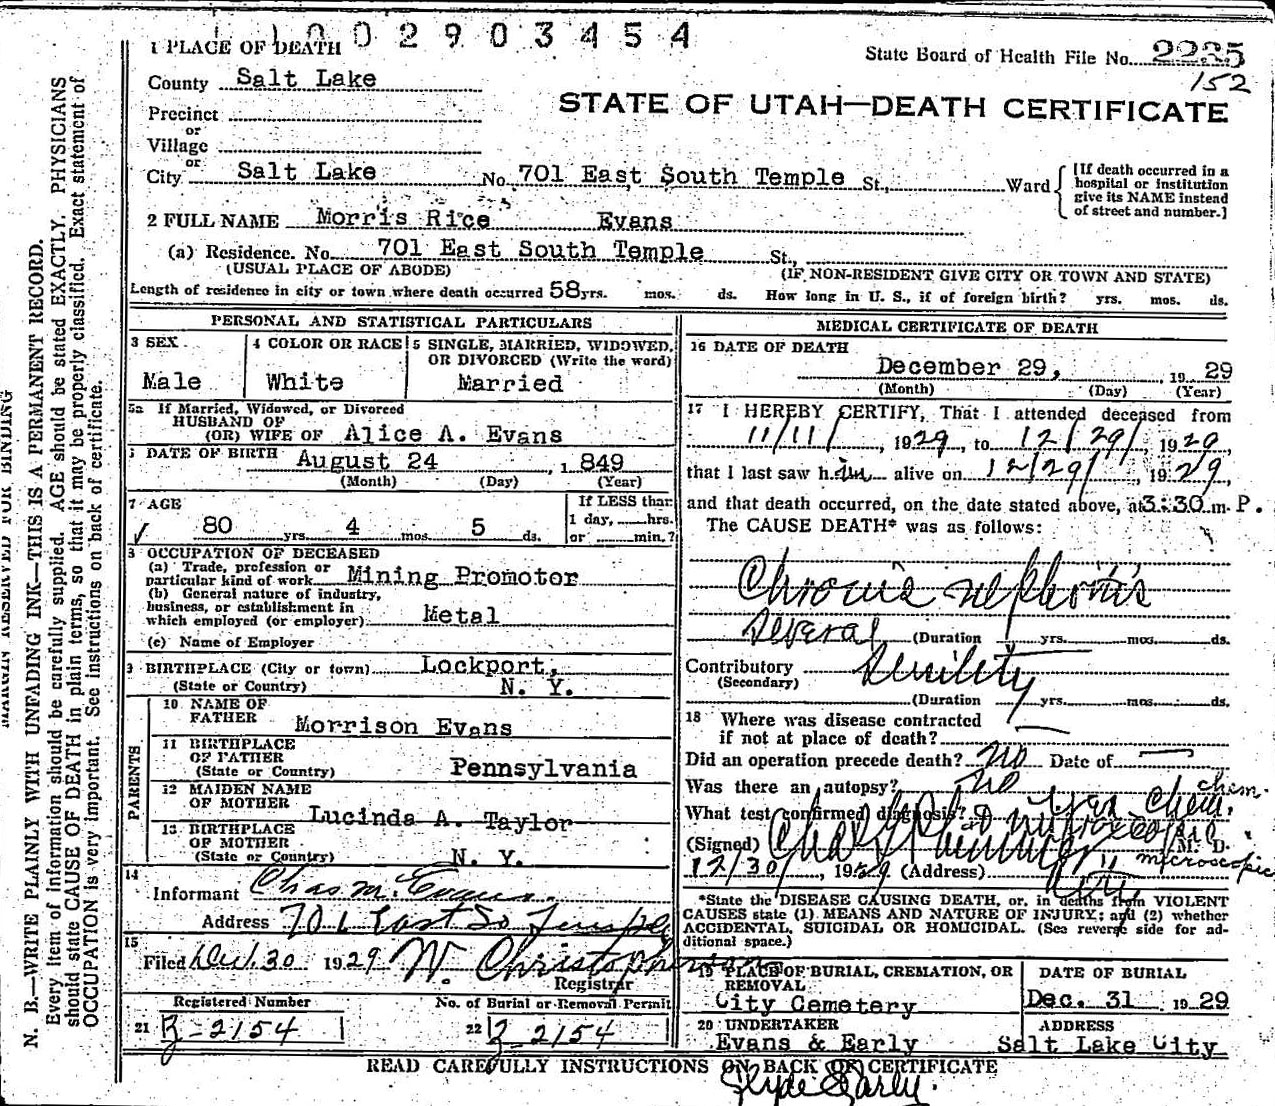 1 0 0 2 9 0 3 4 5 4
1 PLACE OF DEATH
State Board of Health File No. 2235
152
County Salt Lake
STATE OF UTAH—DEATH CERTIFICATE
Precinct
or
Village
or
City Salt Lake No. 701 East South Temple St., Ward
[If death occurred in a hospital or institution give its NAME instead of street and number.]
2 FULL NAME Morris Rice Evans
(a) Residence. No. 701 East South Temple St.,
(USUAL PLACE OF ABODE) (IF NON-RESIDENT GIVE CITY OR TOWN AND STATE)
Length of residence in city or town where death occurred 58 yrs. mos. ds. How long in U. S., if of foreign birth? yrs. mos. ds.
PERSONAL AND STATISTICAL PARTICULARS
3 SEX
Male
4 COLOR OR RACE
White
5 SINGLE, MARRIED, WIDOWED,
OR DIVORCED (Write the word)
Married
5a If Married, Widowed, or Divorced
HUSBAND OF
(OR) WIFE OF Alice A. Evans
DATE OF BIRTH August 24, 1849
(Month) (Day) (Year)
7 AGE
80 yrs. 4 mos. 5 ds.
If LESS than
1 day, hrs.
or min.?
8 OCCUPATION OF DECEASED
(a) Trade, profession or
particular kind of work Mining Promotor
(b) General nature of industry,
business, or establishment in
which employed (or employer) Metal
(c) Name of Employer
9 BIRTHPLACE (City or town) Lockport,
(State or Country) N. Y.
PARENTS
10 NAME OF
FATHER Morrison Evans
11 BIRTHPLACE
OF FATHER
(State or Country) Pennsylvania
12 MAIDEN NAME
OF MOTHER Lucinda A. Taylor
13 BIRTHPLACE
OF MOTHER
(State or Country) N. Y.
14
Informant Chas. M. Evans
Address 701 East So Temple
15
Filed Dec. 30 1929 W. Christopherson
Registrar
Registered Number
21 Z-2154
No. of Burial or Removal Permit
22 Z-2154
MEDICAL CERTIFICATE OF DEATH
16 DATE OF DEATH
December 29, 1929
(Month) (Day) (Year)
17 I HEREBY CERTIFY, That I attended deceased from
11/11/, 1929, to 12/29/ 1929,
that I last saw him alive on 12/29/ 1929,
and that death occurred, on the date stated above, at 3:30 m. P.
The CAUSE DEATH* was as follows:
Chronic nephritis
Several (Duration yrs. mos. ds.
Contributory Senility
(Secondary)
(Duration yrs. mos. ds.
18 Where was disease contracted
if not at place of death?
Did an operation precede death? No Date of
Was there an autopsy? No chem.
What test confirmed diagnosis? chem.
(Signed) Chas M. D.
microscopic
12/30/, 1929 (Address) City
*State the DISEASE CAUSING DEATH, or, in deaths from VIOLENT
CAUSES state (1) MEANS AND NATURE OF INJURY; and (2) whether
ACCIDENTAL, SUICIDAL OR HOMICIDAL. (See reverse side for ad-
ditional space.)
19 PLACE OF BURIAL, CREMATION, OR
REMOVAL
City Cemetery
DATE OF BURIAL
Dec. 31 1929
20 UNDERTAKER
Evans & Early
ADDRESS
Salt Lake City
READ CAREFULLY INSTRUCTIONS ON BACK OF CERTIFICATE
Clyde Early.
MARGIN RESERVED FOR BINDING
N. B.—WRITE PLAINLY WITH UNFADING INK—THIS IS A PERMANENT RECORD.
Every item of information should be carefully supplied. AGE should be stated EXACTLY. PHYSICIANS
should state CAUSE OF DEATH in plain terms, so that it may be properly classified. Exact statement of
OCCUPATION is very important. See instructions on back of certificate.